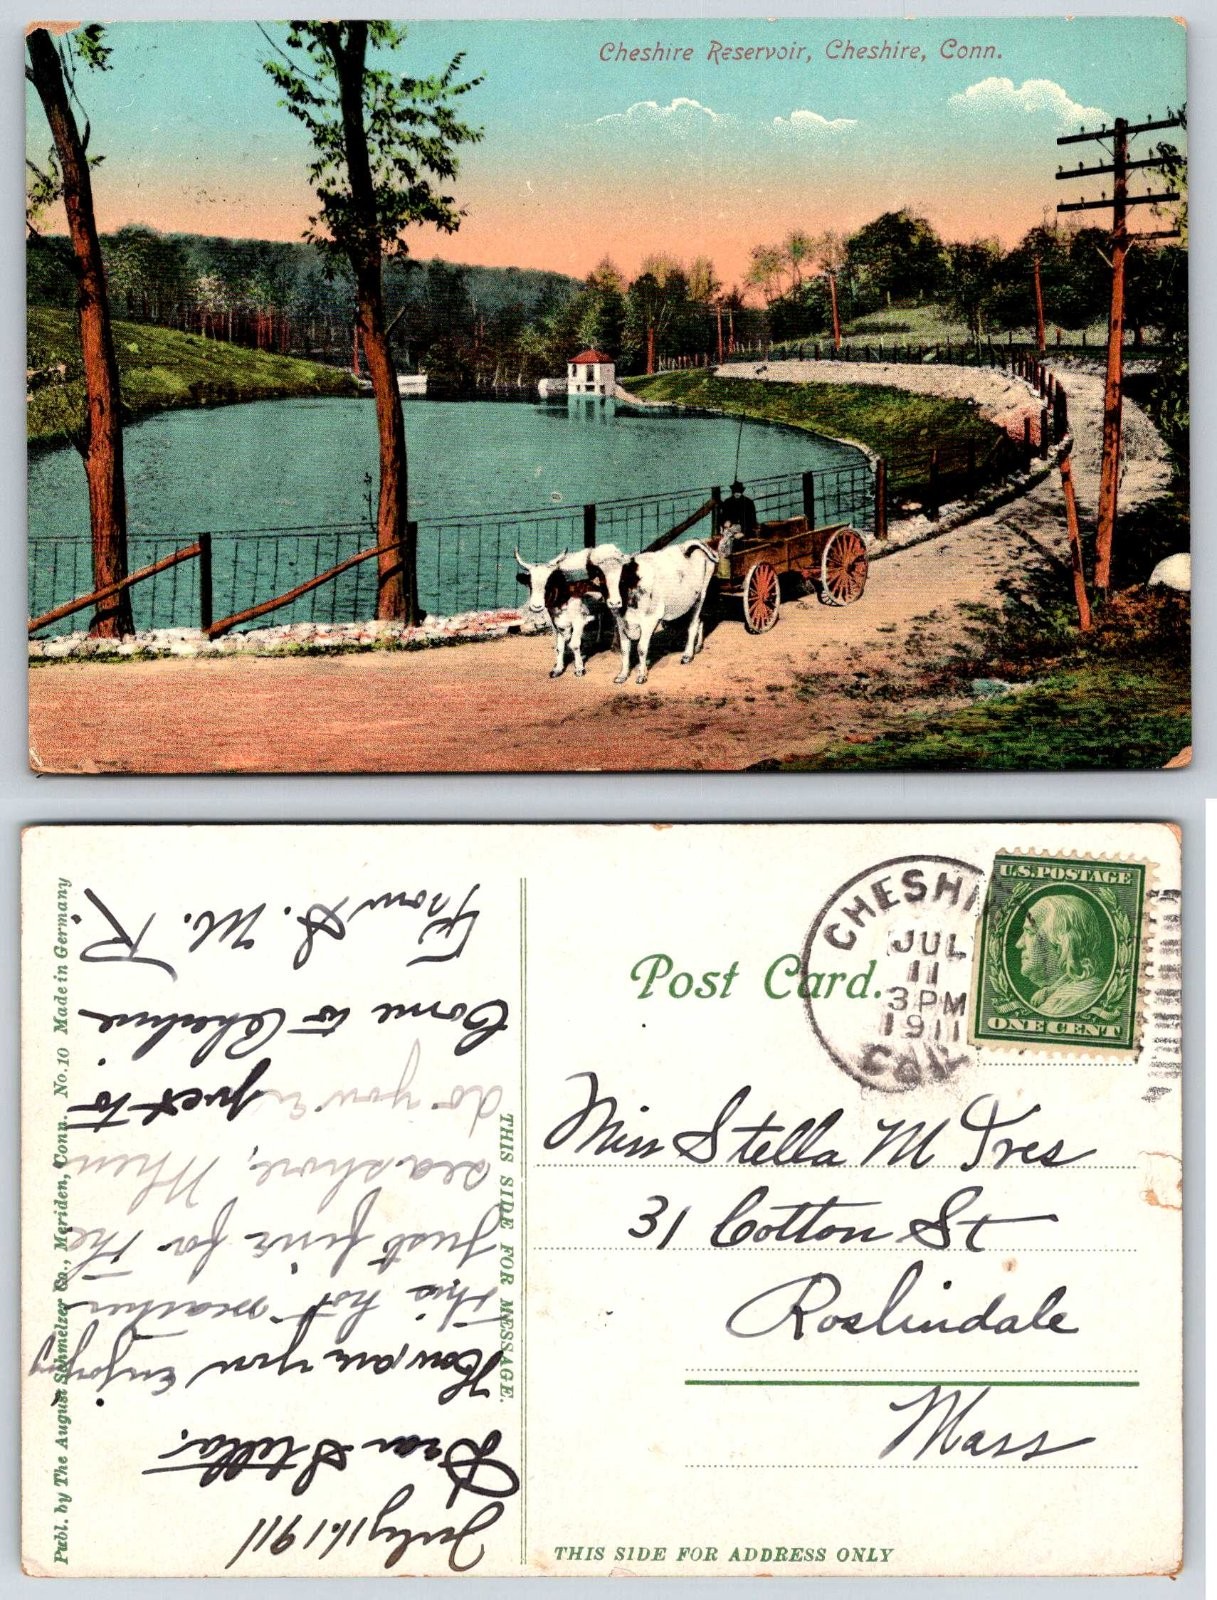 Cheshire Reservoir, Cheshire, Conn.
Publ. by The August Schmelzer Co., Meriden, Conn. No. 10 Made in Germany
July 11. 1911
Dear Stella.
How are you enjoying
this hot weather
Just fine for the
seashore, When
do you expect to
Come to Cheshire
From S. M. R.
THIS SIDE FOR MESSAGE.
Post Card.
CHESHIRE
JUL
11
3 PM
1911
U.S. POSTAGE
ONE CENT
Miss Stella M Ives
31 Cotton St
Roslindale
Mass
THIS SIDE FOR ADDRESS ONLY